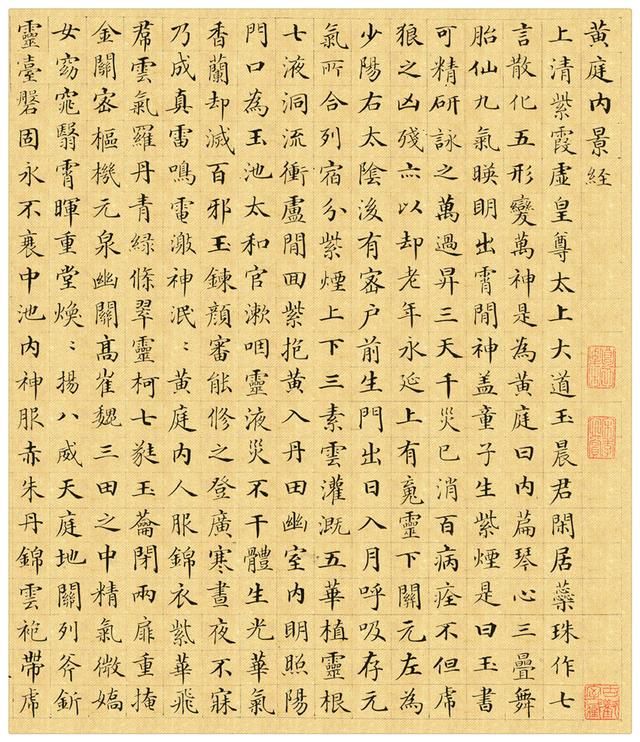 黃庭內景経
上清紫霞虛皇尊太上大道玉晨君閑居蘂珠作七
言散化五形變萬神是為黃庭曰內篇琴心三疊舞
胎仙九氣暎明出霄間神盖童子生紫煙是曰玉書
可精研詠之萬過昇三天千災已消百病痊不但虎
狼之凶殘亦以却老年永延上有䰟靈下關元左為
少陽右太陰後有密户前生門出日入月呼吸存元
氣所合列宿分紫煙上下三素雲灌溉五華植靈根
七液洞流衝廬間回紫抱黃入丹田幽室內明照陽
門口為玉池太和官漱咽靈液災不干體生光華氣
香蘭却滅百邪玉鍊顏審能修之登廣寒晝夜不寐
乃成真雷鳴電激神泯〻黃庭內人服錦衣紫華飛
帬雲氣羅丹青綠條翠靈柯七蕤玉籥閉兩扉重掩
金關密樞機元泉幽關高崔巍三田之中精氣微嬌
女窈窕翳霄暉重堂煥〻揚八威天庭地關列斧釿
靈臺磐固永不衰中池內神服赤朱丹錦雲袍帶虎